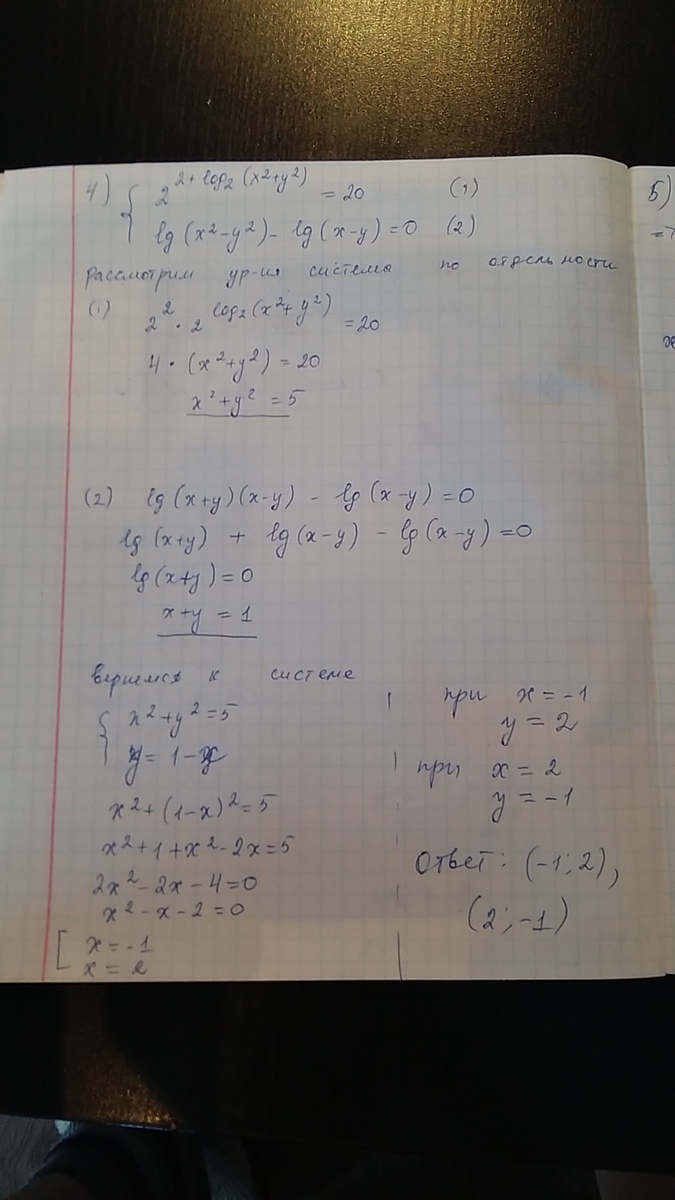 4) { 2^(2 + log₂(x²+y²)) = 20 (1)
lg(x²-y²) - lg(x-y) = 0 (2)
рассмотрим ур-ия системы по отдельности
(1) 2² · 2^(log₂(x²+y²)) = 20
4 · (x²+y²) = 20
x²+y² = 5
(2) lg(x+y)(x-y) - lg(x-y) = 0
lg(x+y) + lg(x-y) - lg(x-y) = 0
lg(x+y) = 0
x+y = 1
вернемся к системе
{ x²+y² = 5
y = 1-x
x²+(1-x)² = 5
x²+1+x²-2x = 5
2x²-2x-4 = 0
x²-x-2 = 0
[ x = -1
x = 2
при x = -1
y = 2
при x = 2
y = -1
Ответ: (-1; 2),
(2; -1)
5)